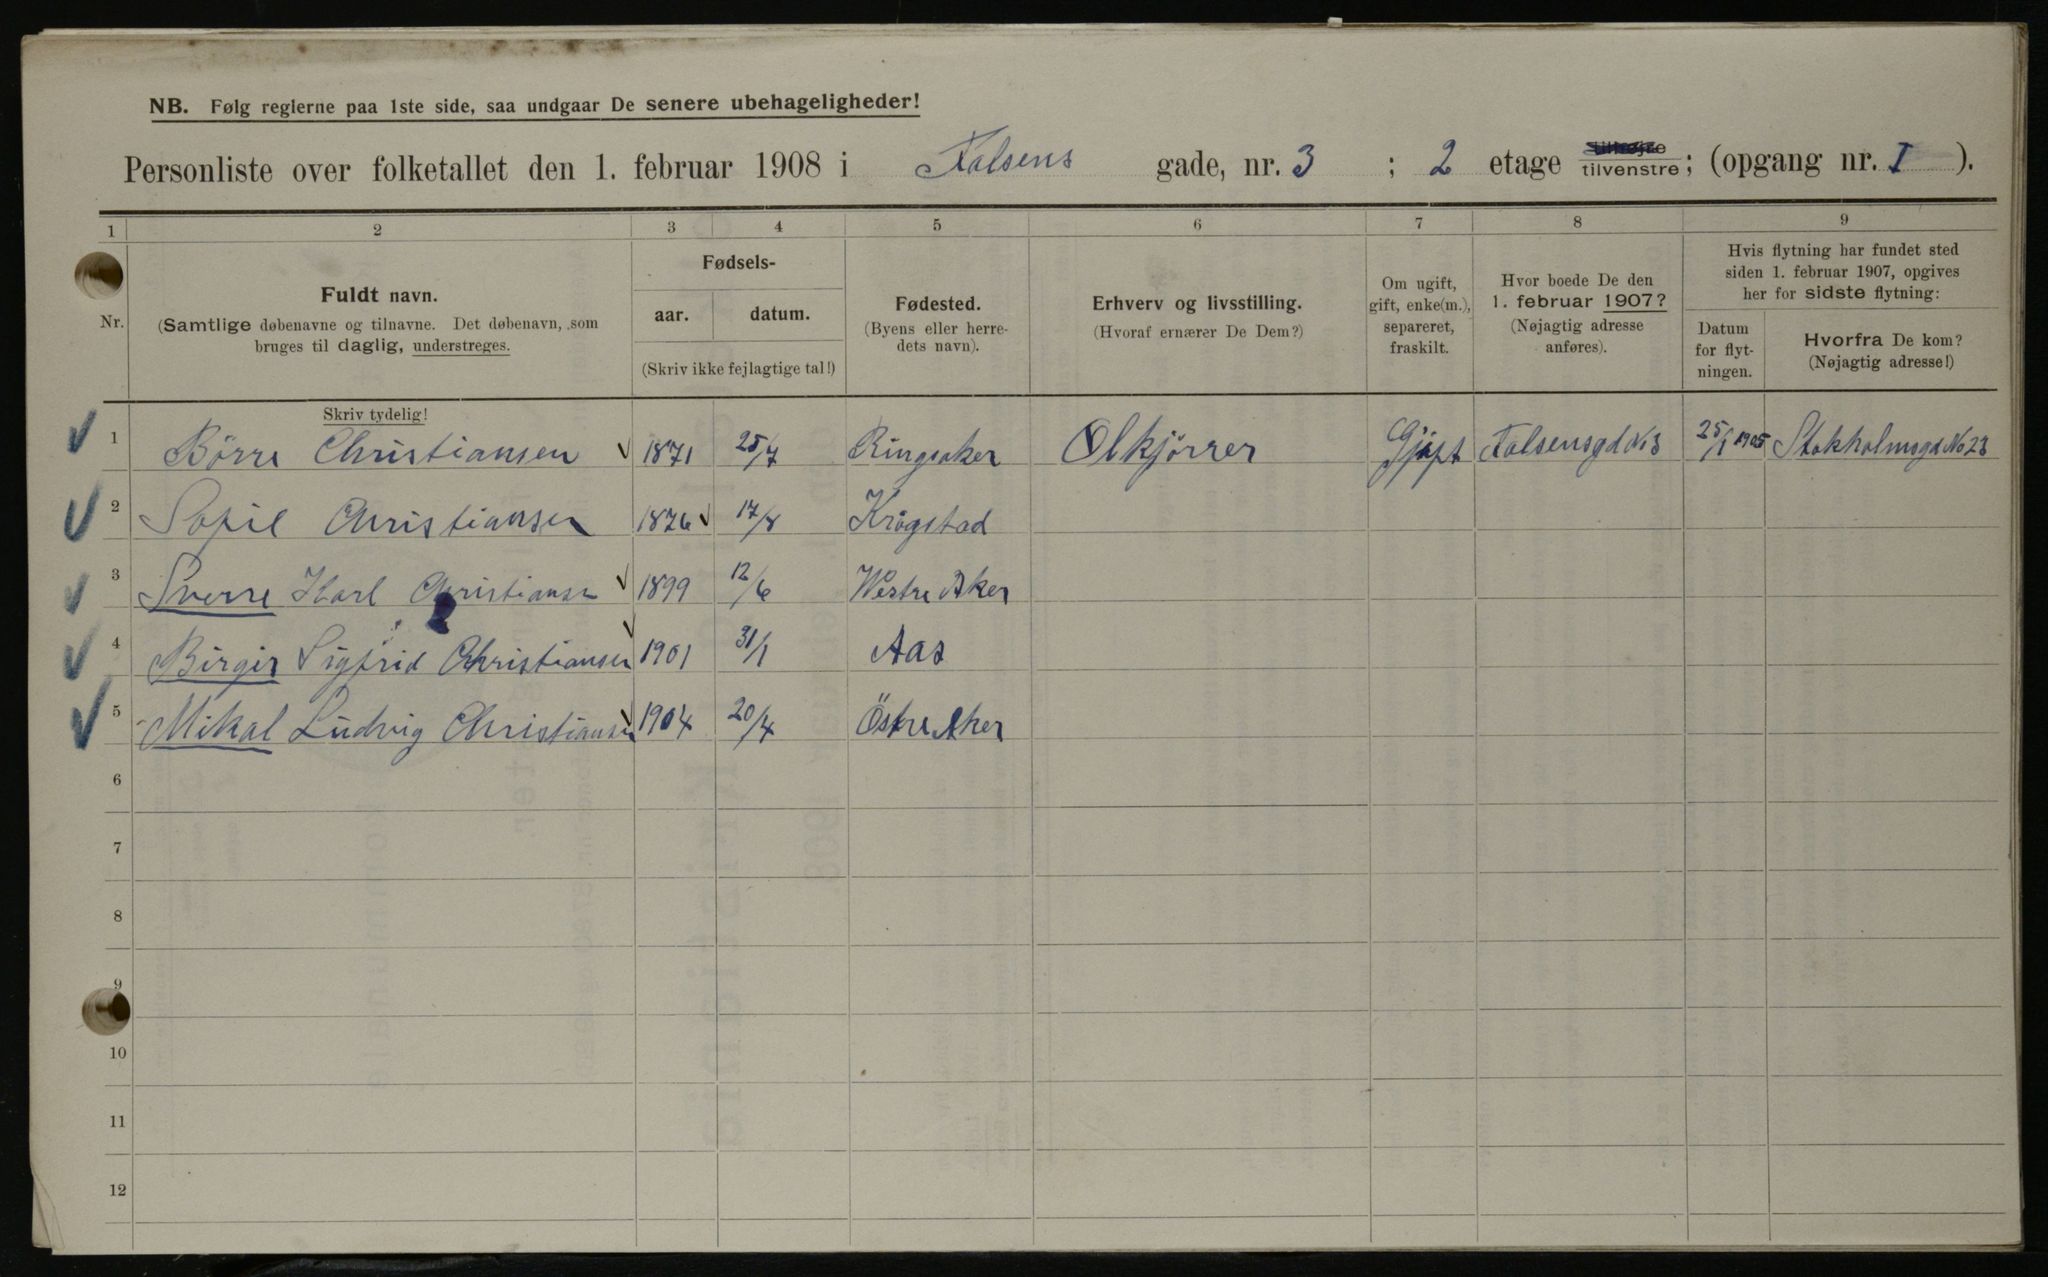 NB. Følg reglerne paa 1ste side, saa undgaar De senere ubehageligheder!
Personliste over folketallet den 1. februar 1908 i Falsens gade, nr. 3 ; 2 etage tilhøjre tilvenstre; (opgang nr. I ).
1 2 3 4 5 6 7 8 9
Nr.
Fuldt navn.
(Samtlige døbenavne og tilnavne. Det døbenavn, som
bruges til daglig, understreges.
Skriv tydelig!
Fødsels-
aar. datum.
(Skriv ikke fejlagtige tal!)
Fødested.
(Byens eller herre-
dets navn).
Erhverv og livsstilling.
(Hvoraf ernærer De Dem?)
Om ugift,
gift, enke(m.),
separeret,
fraskilt.
Hvor boede De den
1. februar 1907?
(Nøjagtig adresse
anføres).
Hvis flytning har fundet sted
siden 1. februar 1907, opgives
her for sidste flytning:
Datum
for flyt-
ningen.
Hvorfra De kom?
(Nøjagtig adresse!)
1 Börre Christiansen 1871 25/7 Ringsaker Olkjörrer Gjift Falsensgd No 3 25/1 1905 Stokholmsgd No 23
2 Sofie Christiansen 1876 17/8 Krogstad
3 Sverre Karl Christiansen 1899 12/6 Westre Aker
4 Birger Sigfrid Christiansen 1901 31/1 Aas
5 Mikal Ludvig Christiansen 1904 20/4 Östre Aker
6
7
8
9
10
11
12